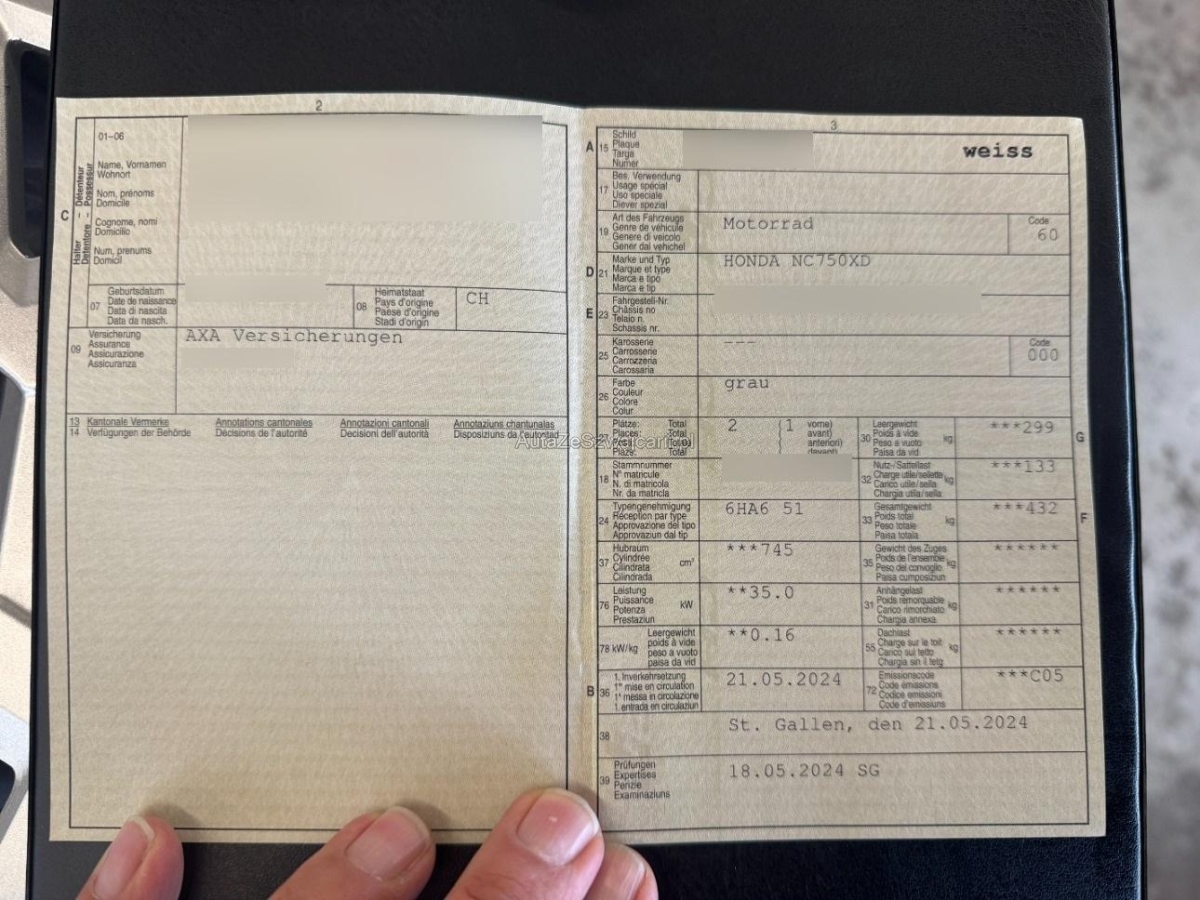 2
01–06
Name, Vornamen
Wohnort
Nom, prénoms
Domicile
Cognome, nomi
Domicilio
Num, prenums
Domicil
C
Halter – Détenteur
Detentore – Possessur
07
Geburtsdatum
Date de naissance
Data di nascita
Data da nasch.
08
Heimatstaat
Pays d'origine
Paese d'origine
Stadi d'origin
CH
09
Versicherung
Assurance
Assicurazione
Assicuranza
AXA Versicherungen
13 Kantonale Vermerke Annotations cantonales Annotazioni cantonali Annotaziuns chantunalas
14 Verfügungen der Behörde Décisions de l'autorité Decisioni dell'autorità Disposiziuns da l'autoritad
3
A 15
Schild
Plaque
Targa
Numer
weiss
17
Bes. Verwendung
Usage spécial
Uso speciale
Diever spezial
19
Art des Fahrzeugs
Genre de véhicule
Genere di veicolo
Gener dal vehichel
Motorrad
Code
60
D 21
Marke und Typ
Marque et type
Marca e tipo
Marca e tip
HONDA NC750XD
E 23
Fahrgestell-Nr.
Châssis no
Telaio n.
Schassis nr.
25
Karosserie
Carrosserie
Carrozzeria
Carossaria
---
Code
000
26
Farbe
Couleur
Colore
Colur
grau
Plätze: Total
Places: Total
Plazs: Total
2 ( 1 vorne)
avant)
anteriori)
davant)
30
Leergewicht
Poids à vide
Peso a vuoto
Paisa da vid
kg
***299
G
18
Stammnummer
N° matricule
N. di matricola
Nr. da matricla
32
Nutz-/Sattellast
Charge utile/sellette
Carico utile/sella
Chargia utila/sella
kg
***133
24
Typengenehmigung
Réception par type
Approvazione del tipo
Approvaziun dal tip
6HA6 51
33
Gesamtgewicht
Poids total
Peso totale
Paisa totala
kg
***432
F
37
Hubraum
Cylindrée
Cilindrata
Cilindrada
cm³
***745
35
Gewicht des Zuges
Poids de l'ensemble
Peso del convoglio
Paisa cumposiziun
kg
******
76
Leistung
Puissance
Potenza
Prestaziun
kW
**35.0
31
Anhängelast
Poids remorquable
Carico rimorchiato
Chargia annexa
kg
******
78 kW/kg
Leergewicht
poids à vide
peso a vuoto
paisa da vid
**0.16
55
Dachlast
Charge sur le toit
Carico sul tetto
Chargia sin il tetg
kg
******
B 36
1. Inverkehrsetzung
1re mise en circulation
1a messa in circolazione
1. entrada en circulaziun
21.05.2024
72
Emissionscode
Code émissions
Codice emissioni
Code d'emissiuns
***C05
38
St. Gallen, den 21.05.2024
39
Prüfungen
Expertises
Perizie
Examinaziuns
18.05.2024 SG